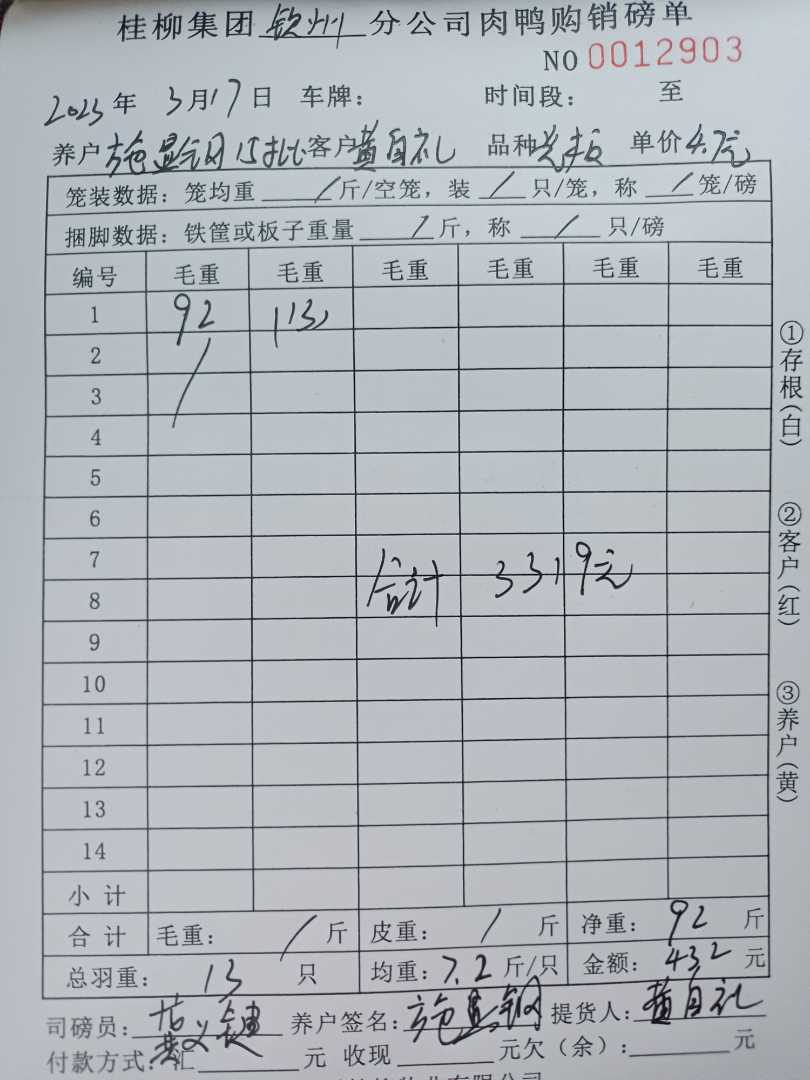 桂柳集团钦州分公司肉鸭购销磅单
NO 0012903
2023年 3月17日 车牌： 时间段： 至
养户施显钢15批 客户黄自礼 品种光板 单价4.7元
笼装数据：笼均重 / 斤/空笼，装 / 只/笼，称 / 笼/磅
捆脚数据：铁筐或板子重量 / 斤，称 / 只/磅
编号 毛重 毛重 毛重 毛重 毛重 毛重
1 92 (13)
2 /
3
4
5
6
7
8
合计 3319元
9
10
11
12
13
14
小计
合计 毛重： / 斤 皮重： / 斤 净重： 92 斤
总羽重： 13 只 均重：7.2斤/只 金额：432元
司磅员： 养户签名：施显钢 提货人：黄自礼
付款方式：汇 元 收现 元欠（余）： 元
①存根（白）
②客户（红）
③养户（黄）